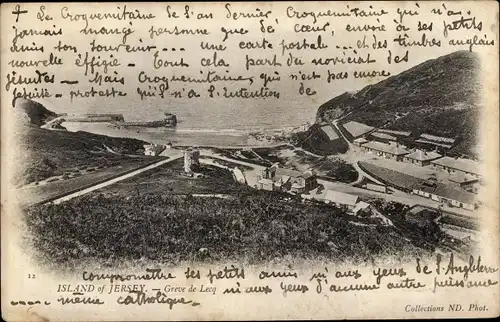 + Le Croquemitaine de l'an dernier, Croquemitaine qui n'a
Jamais mangé personne que de cœur, envoie à ses petits
amis son souvenir... une carte postale... et des timbres anglais
nouvelle effigie - Tout cela part du noviciat des
jésuites - Mais Croquemitaine, qui n'est pas encore
Jésuite - proteste qu'il n'a l'intention de
compromettre ses petits amis ni aux yeux de l'Angleterre
ni aux yeux d'aucune autre puissance
même catholique
12
ISLAND of JERSEY. — Greve de Lecq
Collections ND. Phot.